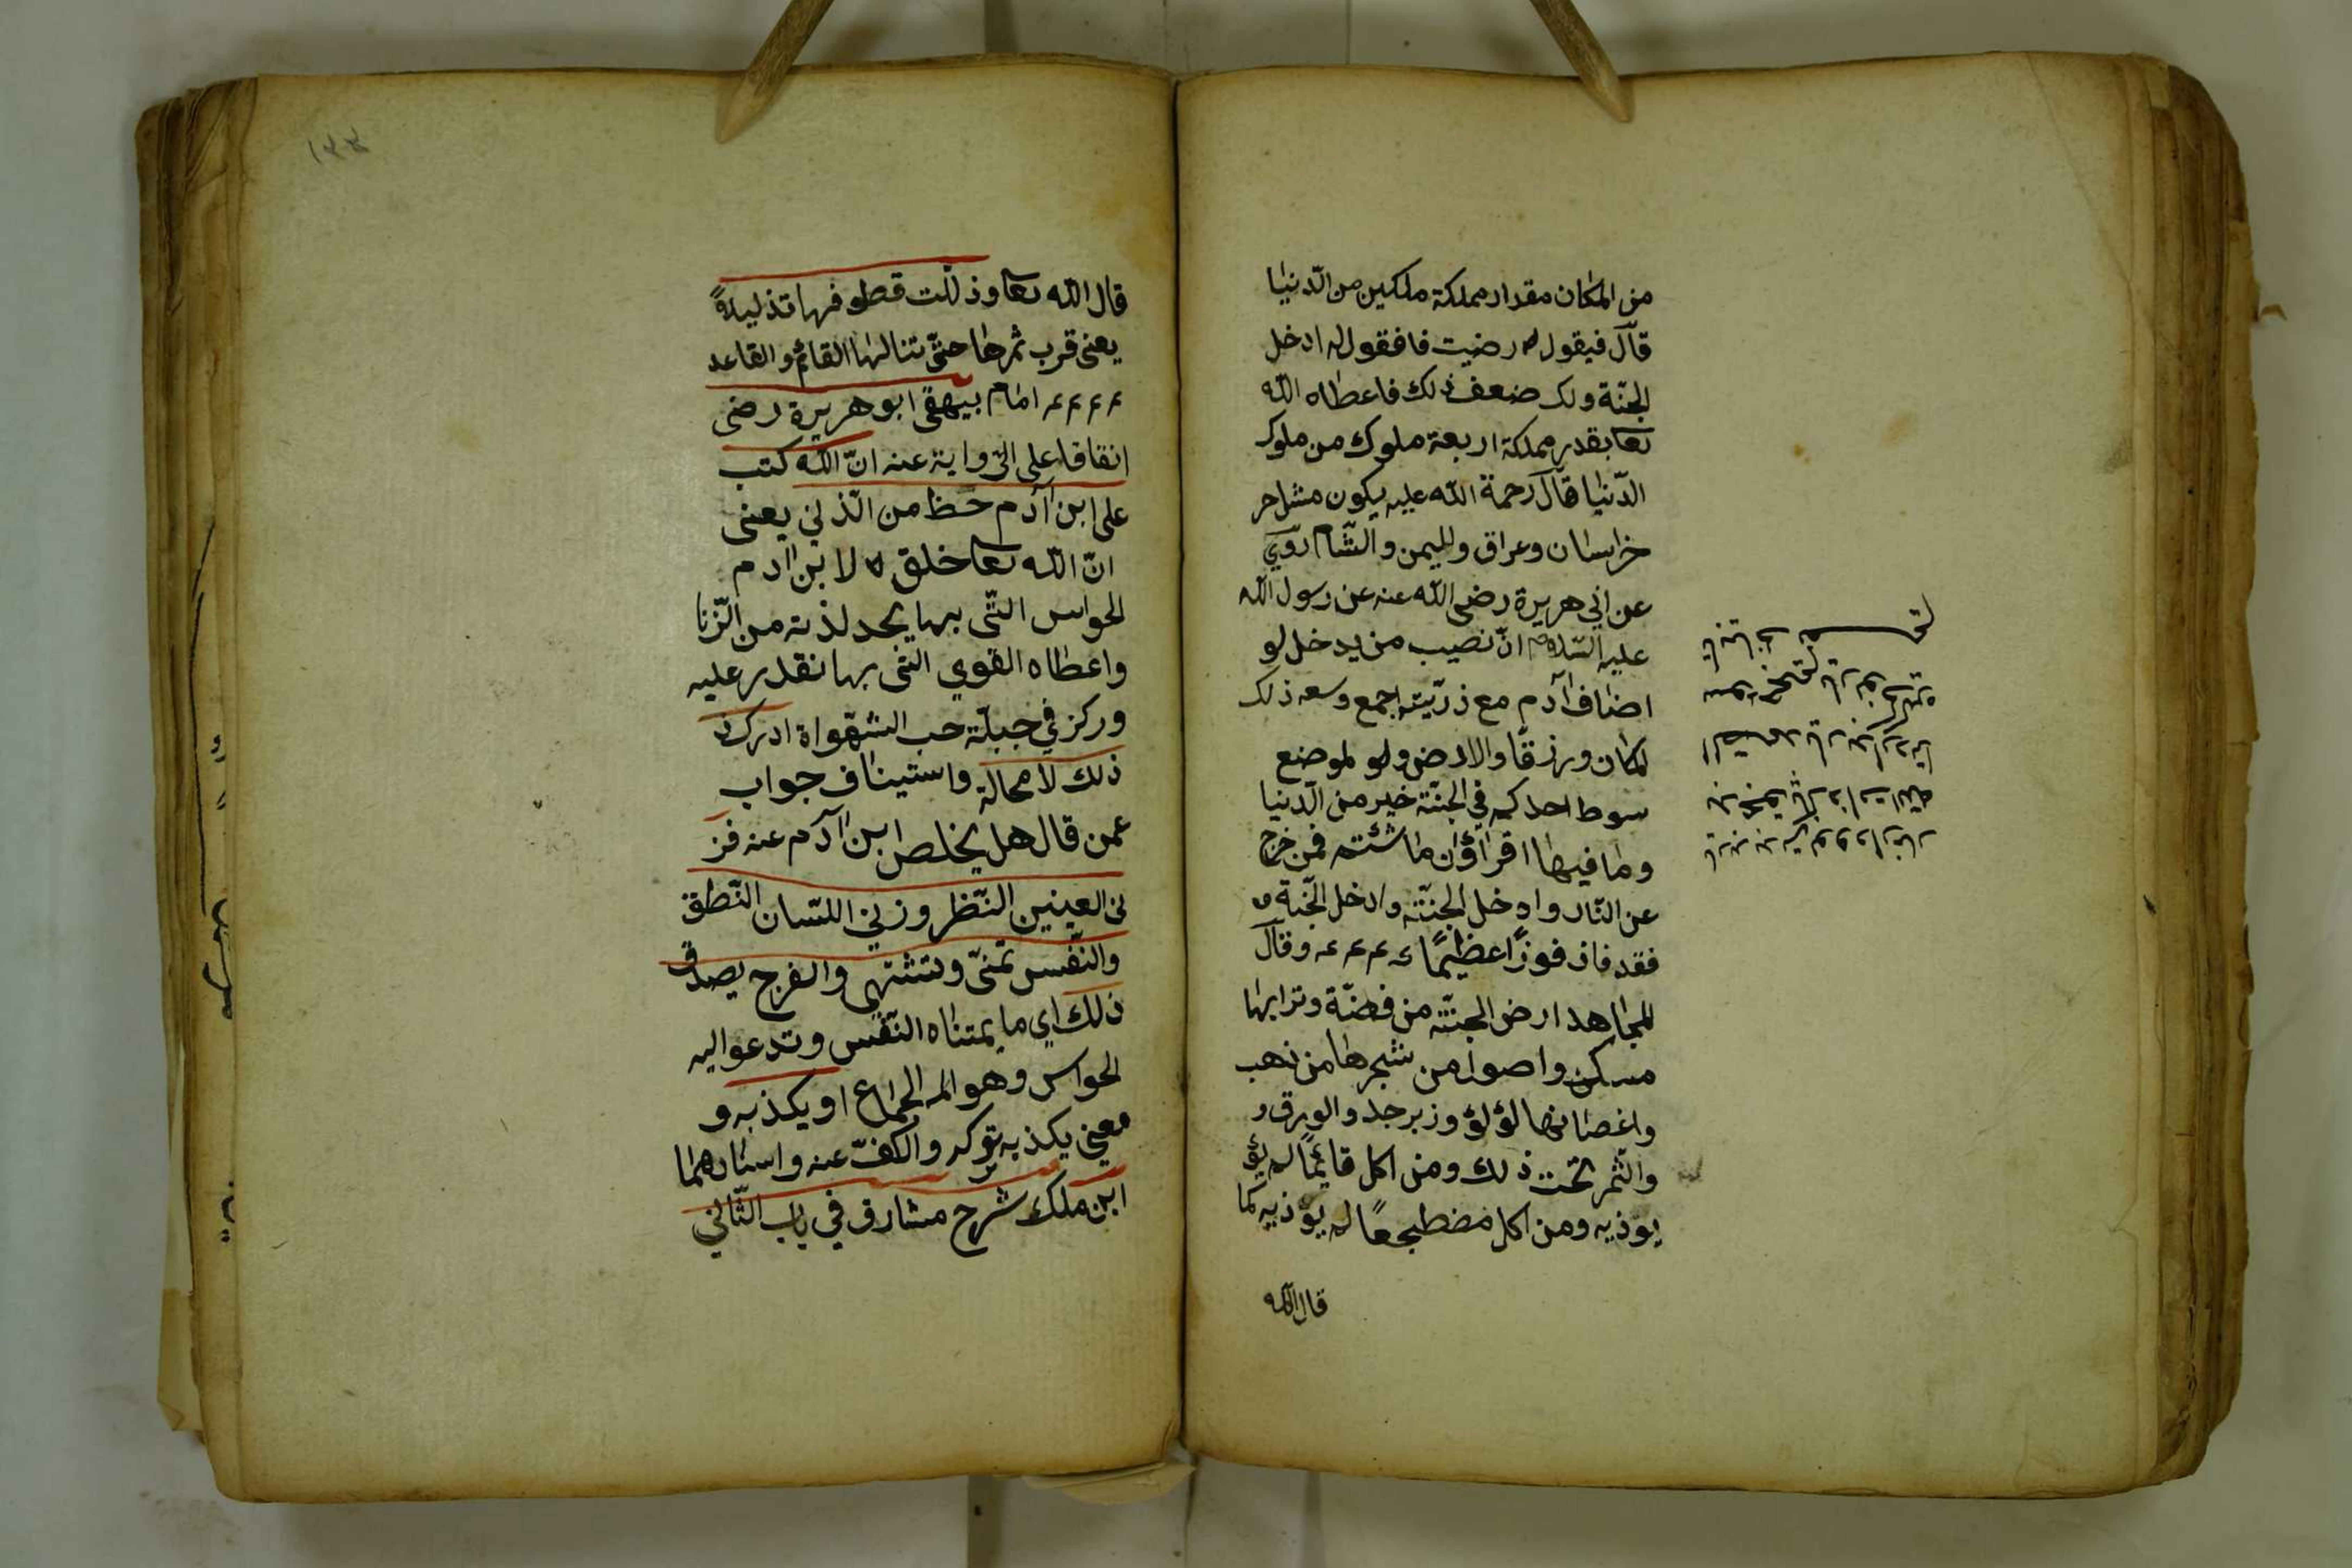 من المكان مقدار مملكة ملكين من الدّنيا
قال فيقول له رضيت فافقول له ادخل
الجنّة ولك ضعف ذلك فاعطاه اللّه
تعا بقدر مملكة اربعة ملوك من ملوك
الدّنيا قال رحمة اللّه عليه يكون مثل
خراسان وعراق واليمن والشّام روي
عن ابي هريرة رضى اللّه عنه عن رسول اللّه
عليه السّلام انّ نصيب من يدخل لو
اضاف آدم مع ذرّيته اجمع وسعه ذلك
لمكان ورزقا والارض ولو لموضع
سوط احدكم في الجنّة خير من الدّنيا
وما فيها اقرأوان ما شئتم فمن خرج
عن النّار وادخل الجنّته وادخل الجنّة
فقد فاز فوزًا عظيمًا وقال
المجاهد ارض الجنّته من فضّة وترابها
مسكن واصوا من شجرها من ذهب
واغصانها لؤلؤ وزبرجد والورق و
والثّمر تحت ذلك ومن اكل قائمًا لم يؤ
يوذيه ومن اكل مضطجعًا لم يوذيه كما
قال اللّه
١٣٣
قال اللّه تعا وذلّلت قطوفها تذليلاً
يعنى قرب ثمرها حتّى تنالها القائم والقاعد
امام بيهقى ابو هريرة رضى
اتفاقا على الرّواية عنه انّ اللّه كتب
على ابن آدم حظ من الّذني يعنى
انّ اللّه تعا خلق لابن ادم
الحواس التّى بها يجد لذته من الزّنا
واعطاه القوي التّى بها نقدر عليه
وركز في جبلّة حب الشّهواة ادرك ذ
ذلك لا محالة واستيناف جواب
عمن قال هل يخلص ابن آدم عنه فز
نى العينين النّظر وزني اللسّان النّطق
والنّفس تمنّى وتشتهى والفرج يصدق
ذلك اي ما يمتناه النّفس وتدعوا اليه
الحواس وهو الم الجماع او يكذبه و
معني يكذبه توكه والكفّ عنه واستارهما
ابن ملك شرح مشارق في باب الثّاني